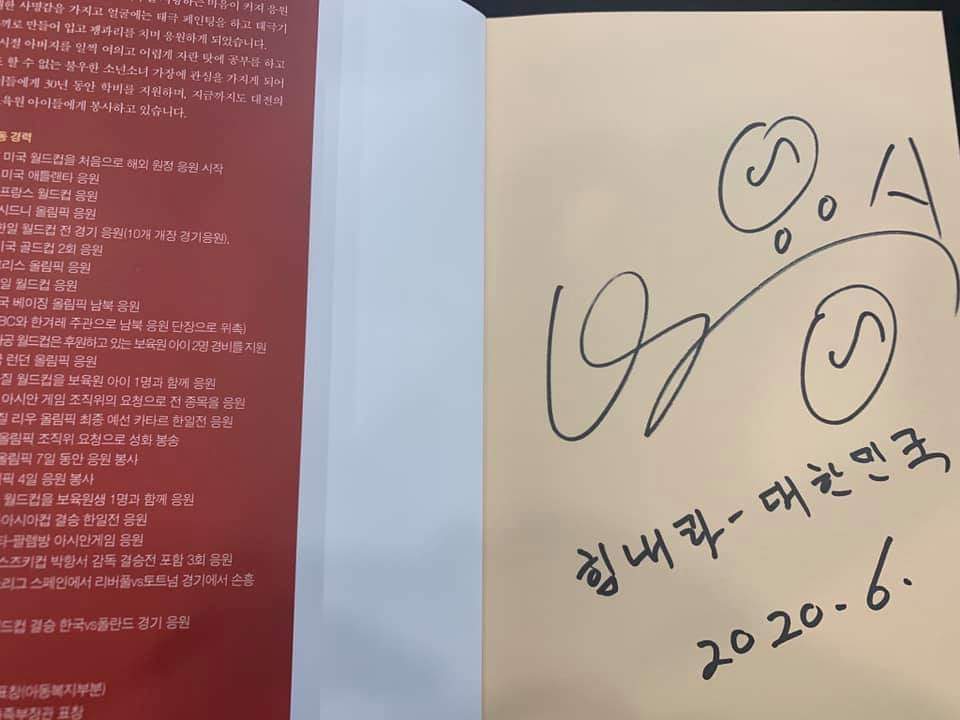 마음이 커져 응원
사명감을 가지고 얼굴에는 태극 페인팅을 하고 태극기
만들어 입고 꽹과리를 치며 응원하게 되었습니다.
시절 아버지를 일찍 여의고 어렵게 자란 탓에 공부를 하고
할 수 없는 불우한 소년소녀 가장에 관심을 가지게 되어
30년 동안 학비를 지원하며, 지금까지도 대전의
아이들에게 봉사하고 있습니다.
경력
미국 월드컵을 처음으로 해외 원정 응원 시작
미국 애틀랜타 응원
프랑스 월드컵 응원
시드니 올림픽 응원
한일 월드컵 전 경기 응원(10개 개장 경기응원),
골드컵 2회 응원
올림픽 응원
월드컵 응원
베이징 올림픽 남북 응원
한겨레 주관으로 남북 응원 단장으로 위촉)
월드컵은 후원하고 있는 보육원 아이 2명 경비를 지원
런던 올림픽 응원
월드컵을 보육원 아이 1명과 함께 응원
아시안 게임 조직위의 요청으로 전 종목을 응원
리우 올림픽 최종 예선 카타르 한일전 응원
올림픽 조직위 요청으로 성화 봉송
올림픽 7일 동안 응원 봉사
4일 응원 봉사
월드컵을 보육원생 1명과 함께 응원
아시아컵 결승 한일전 응원
팔렘방 아시안게임 응원
스즈키컵 박항서 감독 결승전 포함 3회 응원
스페인에서 리버풀vs토트넘 경기에서 손흥
결승 한국vs폴란드 경기 응원
표창(아동복지부분)
표창
힘내라 - 대한민국
2020. 6.